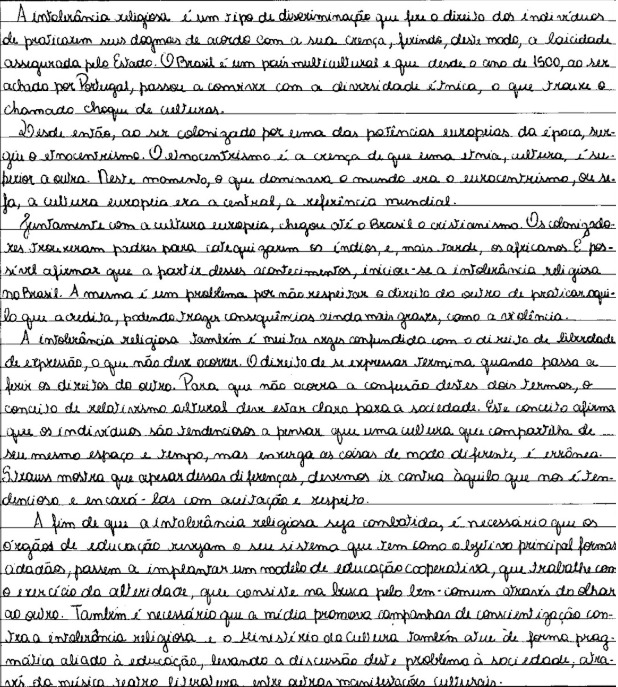 A intolerância religiosa é um tipo de discriminação que fere o direito dos indivíduos
de praticarem seus dogmas de acordo com a sua crença, ferindo, deste modo, a laicidade
assegurada pelo Estado. O Brasil é um país multicultural e que desde o ano de 1500, ao ser
achado por Portugal, passou a conviver com a diversidade étnica, o que trouxe o
chamado choque de culturas.
Desde então, ao ser colonizado por uma das potências europeias da época, sur-
giu o etnocentrismo. O etnocentrismo é a crença de que uma etnia, cultura, é su-
perior a outra. Neste momento, o que dominava o mundo era o eurocentrismo, ou se-
ja, a cultura europeia era a central, a referência mundial.
Juntamente com a cultura europeia, chegou até o Brasil o cristianismo. Os colonizado-
res trouxeram padres para catequizarem os índios e, mais tarde, os africanos. É pos-
sível afirmar que a partir desses acontecimentos, iniciou-se a intolerância religiosa
no Brasil. A mesma é um problema por não respeitar o direito do outro de praticar aqui-
lo que acredita, podendo trazer consequências ainda mais graves, como a violência.
A intolerância religiosa também é muitas vezes confundida com o direito de liberdade
de expressão, o que não deve ocorrer. O direito de se expressar termina quando passa a
ferir os direitos do outro. Para que não ocorra a confusão destes dois termos, o
conceito de relativismo cultural deve estar claro para a sociedade. Este conceito afirma
que os indivíduos são tendenciosos a pensar que uma cultura que compartilha de
seu mesmo espaço e tempo, mas enxerga as coisas de modo diferente, é errônea.
Strauss mostra que apesar dessas diferenças, devemos ir contra àquilo que nos é ten-
dencioso e encará-las com aceitação e respeito.
A fim de que a intolerância religiosa seja combatida, é necessário que os
órgãos de educação revejam o seu sistema que tem como objetivo principal formar
cidadãos, passem a implantar um modelo de educação cooperativa, que trabalhe com
o exercício da alteridade, que consiste na busca pelo bem-comum através do olhar
ao outro. Também é necessário que a mídia promova campanhas de conscientização con-
tra a intolerância religiosa e o Ministério da Cultura também atue de forma prag-
mática aliado à educação, levando a discussão deste problema à sociedade, atra-
vés da música, teatro, literatura, entre outras manifestações culturais.